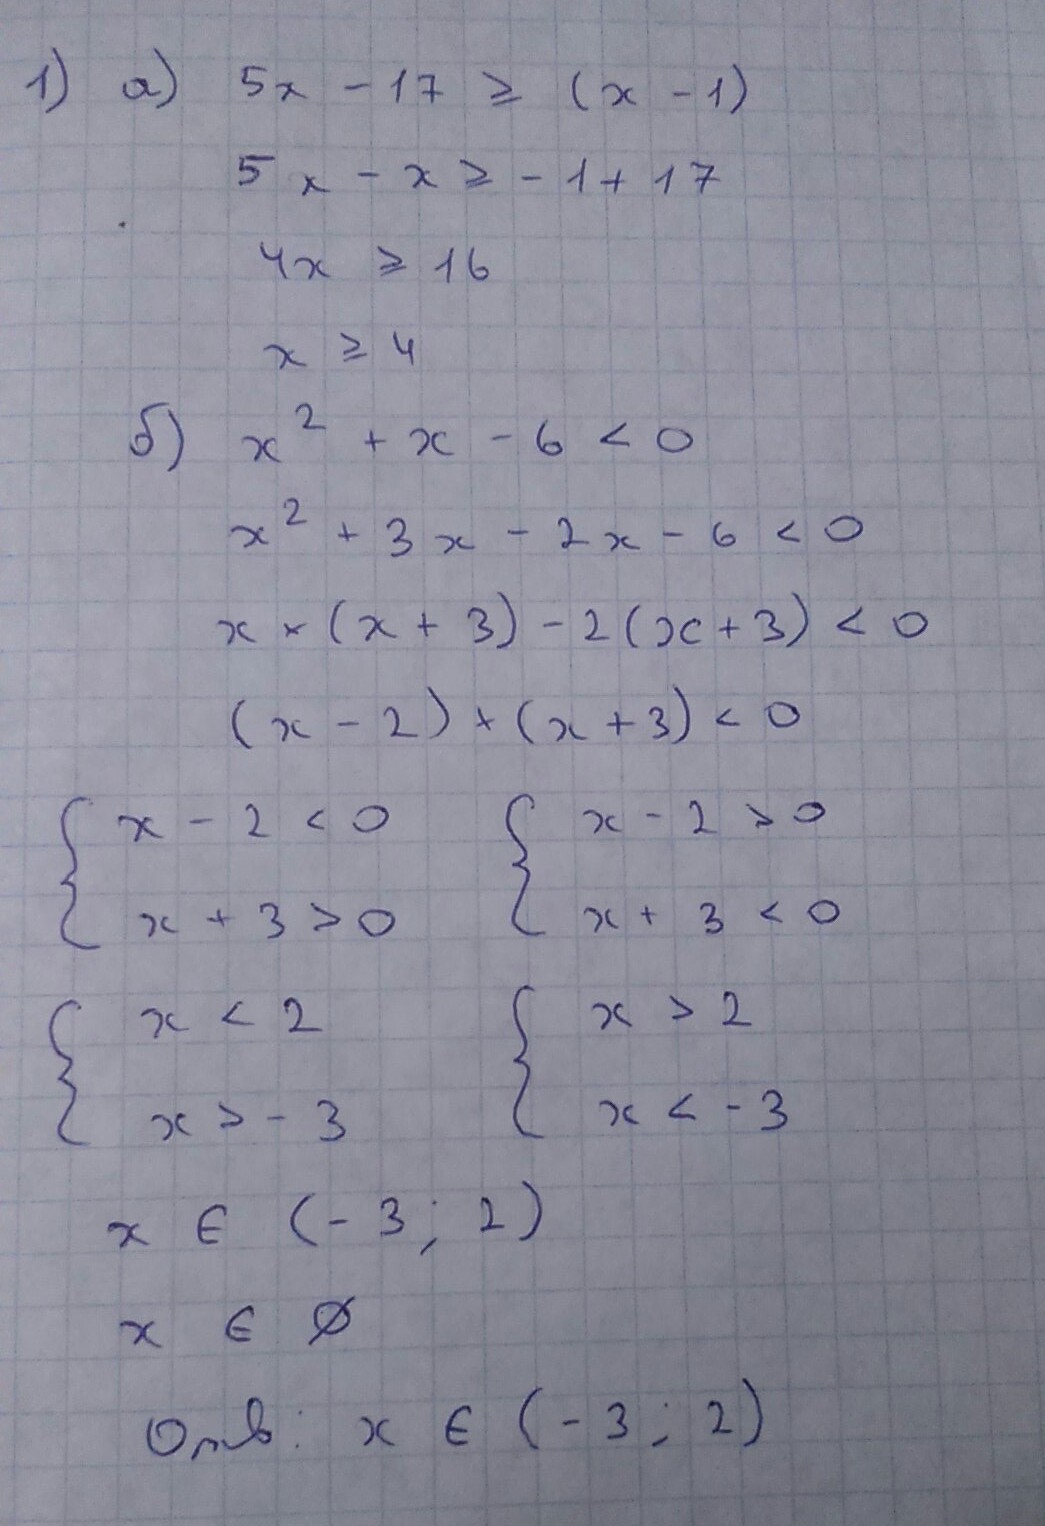 1) а) 5x - 17 ≥ (x - 1)
5x - x ≥ -1 + 17
4x ≥ 16
x ≥ 4
б) x² + x - 6 < 0
x² + 3x - 2x - 6 < 0
x × (x + 3) - 2(x + 3) < 0
(x - 2) × (x + 3) < 0
{ x - 2 < 0 { x - 2 > 0
x + 3 > 0 x + 3 < 0
{ x < 2 { x > 2
x > -3 x < -3
x ∈ (-3; 2)
x ∈ ∅
Отв: x ∈ (-3; 2)